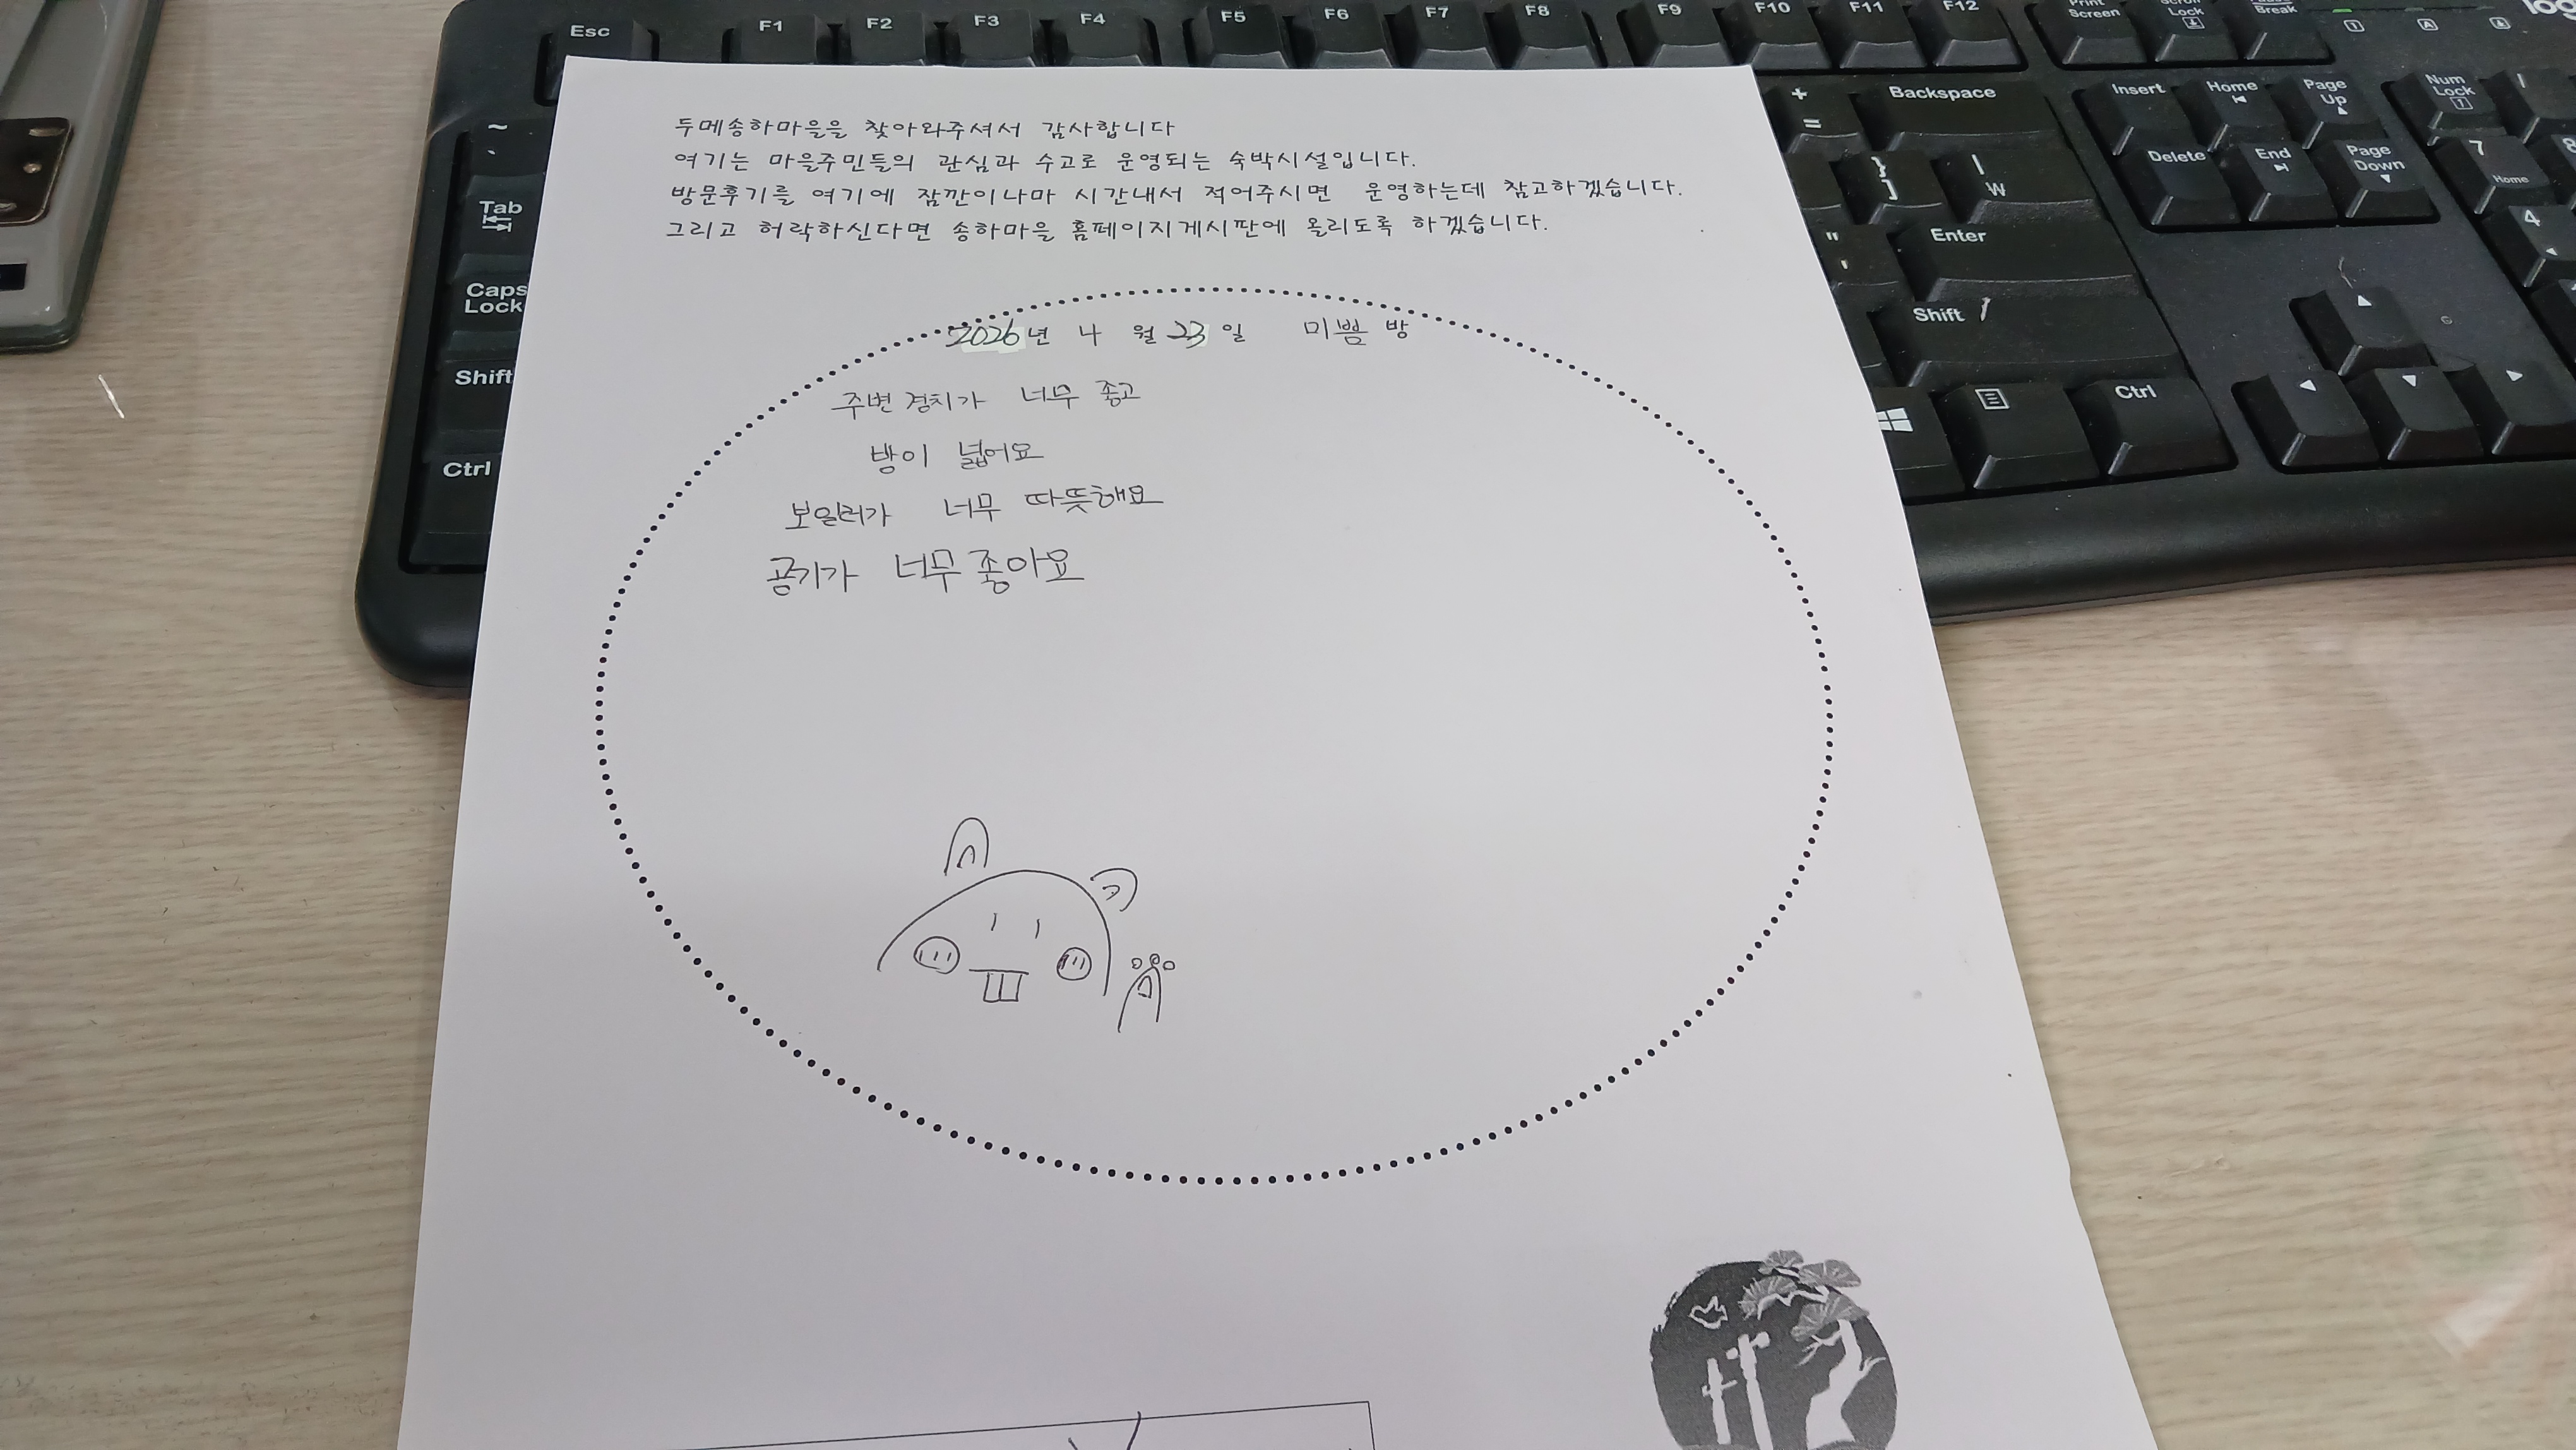 두메송하마을을 찾아와주셔서 감사합니다
여기는 마을주민들의 관심과 수고로 운영되는 숙박시설입니다.
방문후기를 여기에 잠깐이나마 시간내서 적어주시면 운영하는데 참고하겠습니다.
그리고 허락하신다면 송하마을 홈페이지게시판에 올리도록 하겠습니다.
2026년 4월 23일 미쁨 방
주변 경치가 너무 좋고
방이 넓어요
보일러가 너무 따뜻해요
공기가 너무 좋아요
Esc F1 F2 F3 F4 F5 F6 F7 F8 F9 F10 F11 F12 Print Screen Scroll Lock Break
~ ` + = Backspace Insert Home Page Up Num Lock
Tab } ] | W Delete End Page Down 7 Home 8
Caps Lock " ' Enter 4
Shift Shift
Ctrl Ctrl